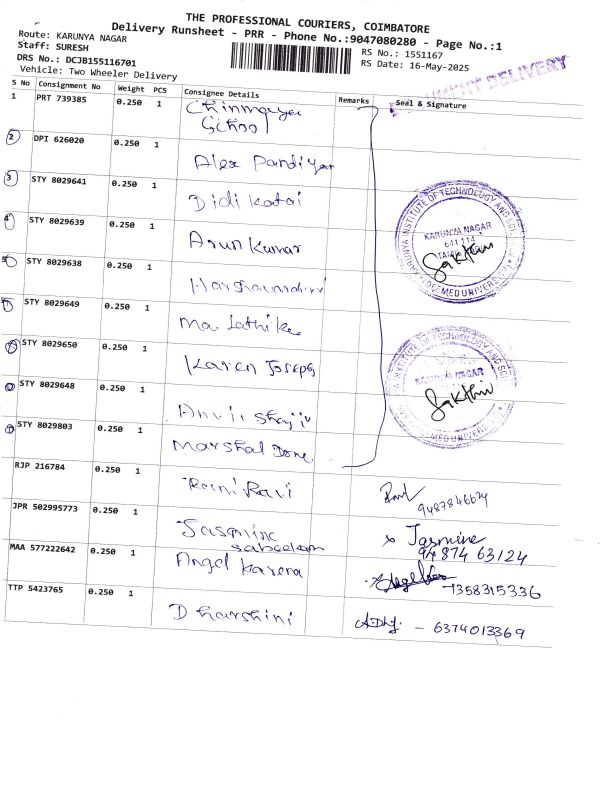 THE PROFESSIONAL COURIERS, COIMBATORE
Delivery Runsheet - PRR - Phone No.:9047080280 - Page No.:1
Route: KARUNYA NAGAR
Staff: SURESH
DRS No.: DCJB155116701
Vehicle: Two Wheeler Delivery
RS No.: 1551167
RS Date: 16-May-2025
DELIVERY
S No Consignment No Weight PCS Consignee Details Remarks Seal & Signature
1 PRT 739385 0.250 1 Chinmaya School
2 DPI 626020 0.250 1 Alex Pandiyan
3 STY 8029641 0.250 1 Didi Katai
4 STY 8029639 0.250 1 Arun Kumar
5 STY 8029638 0.250 1
STY 8029649 0.250 1
STY 8029650 0.250 1 Karen Joseph
STY 8029648 0.250 1 Shayju
STY 8029803 0.250 1 Marshal
RJP 216784 0.250 1 Rani Ravi
JPR 502995773 0.250 1 Jasmine
MAA 577222642 0.250 1 Angel Karena
TTP 5423765 0.250 1 Dharshini
KARUNYA INSTITUTE OF TECHNOLOGY AND
KARUNYA NAGAR
641 114
TAMIL NADU
DEEMED UNIVERSITY
Sakthi
INSTITUTE OF TECHNOLOGY AND
KARUNYA NAGAR
Sakthi
DEEMED UNIVERSITY
x Jasmine
94874 63124
7358315336
- 6374013369